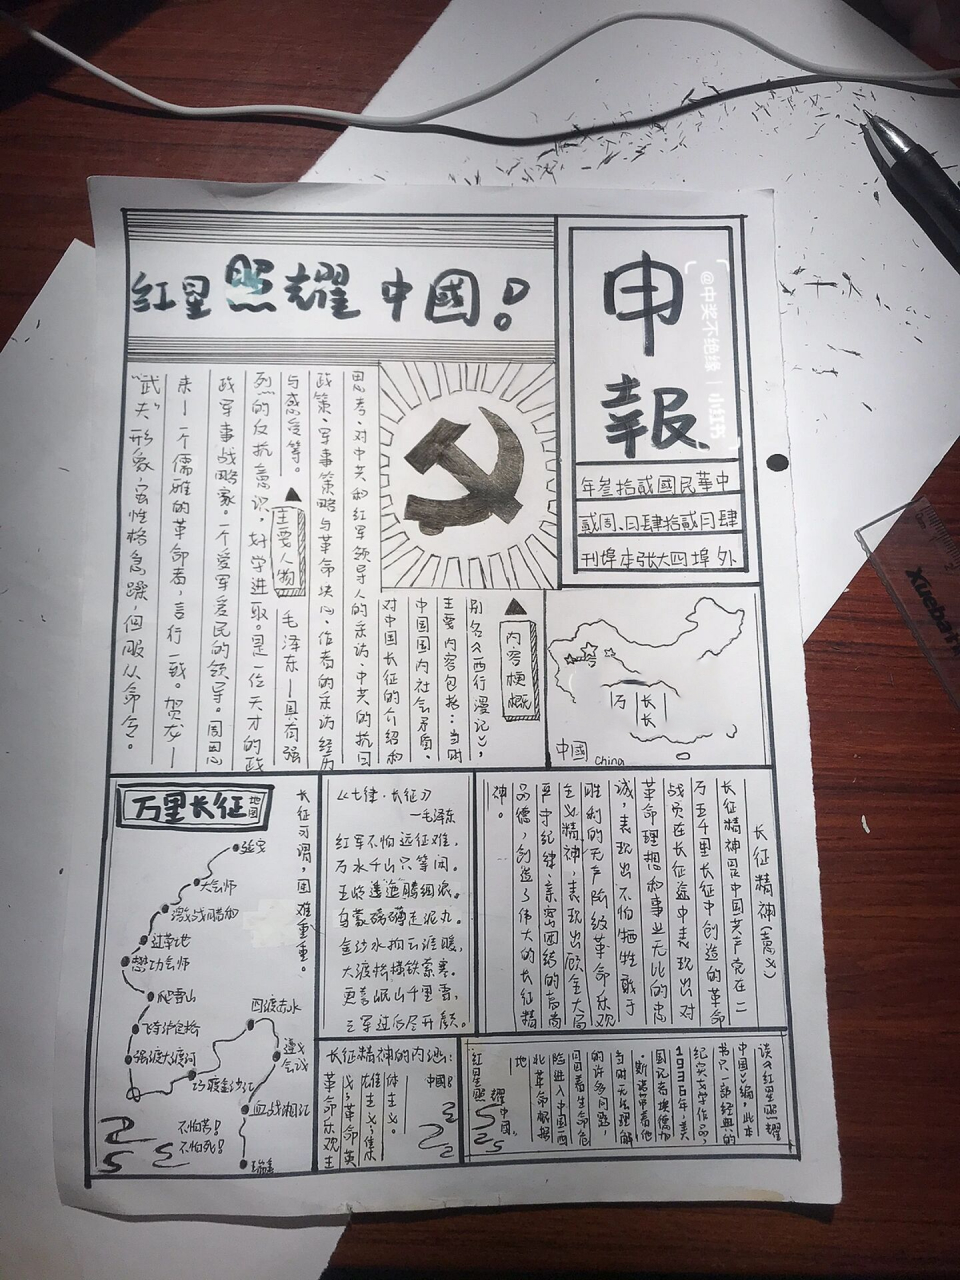 红星照耀中國！
申
報
年叁拾貳國民華中
貳周.日肆拾貳月肆
刊埠本张大四埠外
@中奖不绝缘 | 小红书
内容梗概
别名《西行漫记》,
主要内容包括：当时
中国国内社会矛盾、
对中国长征的介绍和
思考、对中共和红军领导人的采访、中共的抗日
政策、军事策略与革命决心、作者的采访经历
与感受等。
主要人物
毛泽东—具有强
烈的反抗意识，好学进取。是一位天才的政
政军事战略家。一个爱军爱民的领导。周恩
来—一个儒雅的革命者，言行一致。贺龙—
“武夫”形象，虽性格急躁，但服从命令。
万 长
长
中國 China
万里长征地图
长征习谓，困难重重。
延安
大会师
激战腊子口
过草地
懋功会师
爬雪山
飞夺泸定桥
强渡大渡河
巧渡金沙江
四渡赤水
遵义会议
血战湘江
瑞金
不怕苦！
不怕死！
《七律·长征》
—毛泽东
红军不怕远征难，
万水千山只等闲。
五岭逶迤腾细浪，
乌蒙磅礴走泥丸。
金沙水拍云崖暖，
大渡桥横铁索寒。
更喜岷山千里雪，
三军过后尽开颜。
长征精神(意义)
长征精神是中国共产党在二
万五千里长征中创造的革命
战员在长征途中表现出对
革命理想和事业无比的忠
诚，表现出不怕牺牲敢于
胜利的无产阶级革命乐观
主义精神，表现出顾全大局
严守纪律、亲密团结的高尚
品德，创造了伟大的长征精
神。
长征精神的内涵：
革命乐观主
义与革命英
雄主义；集
体主义。
中國！
读《红星照耀
中国》编，此本
书是一部经典的
纪实文学作品，
1936年，美
国记者埃德加
·斯诺带着他
当时无法理解
的许多问题，
冒着生命危
险进入中国西
北革命根据
地
红星照耀中國。